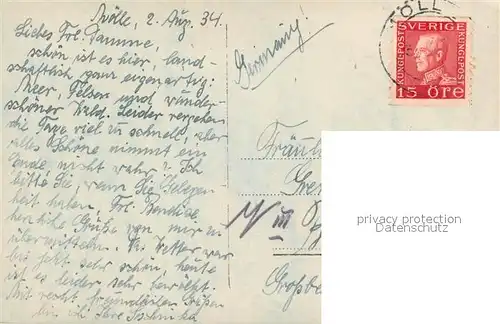 Mölle, 2. Aug. 34.
Liebes Frl. Damme,
schön ist es hier, land-
schaftlich ganz eigenartig:
Meer, Felsen und wunder-
schöner Wald. Leider vergehen
die Tage viel zu schnell, aber
alles Schöne nimmt ein
Ende, nicht wahr? Ich
bitte Sie, wenn Sie Gelegen-
heit haben, Frl.
herzliche Grüße von mir zu
übermitteln. Das Wetter war
bis jetzt sehr schön, heute
ist es leider sehr bewölkt.
Mit recht freundlichen Grüßen
bin ich Ihre
Germany!
MÖLL
SVERIGE
KUNGEPOST
KUNGEPOST
15 ÖRE
Fräul
Gre
IV III
Großbe
privacy protection
Datenschutz